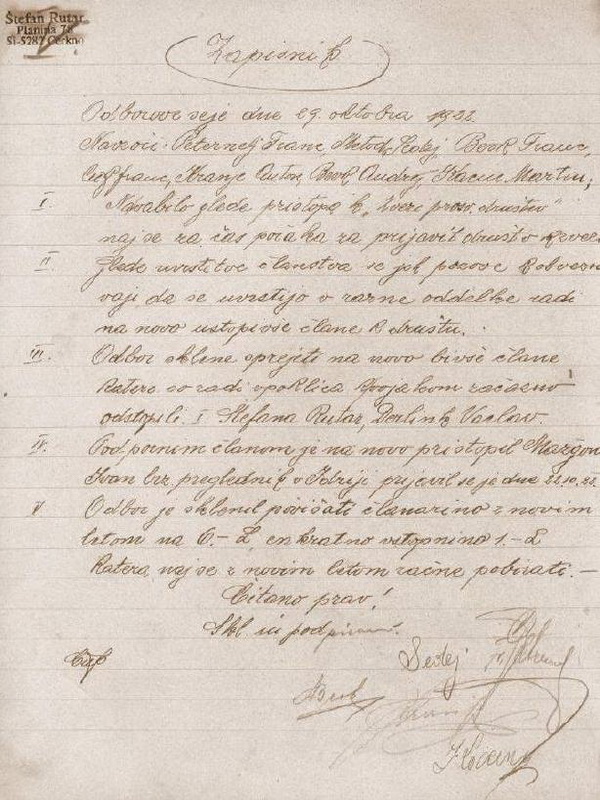 Štefan Rutar
Planina 78
SI-5282 Cerkno
Zapisnik
Odborove seje dne 29. oktobra 1922
Navzoči: Peternelj Franc, Sedej, Bevk Franc,
Franc, Kranjc Anton, Bevk Andrej, Kacin Martin,
I. Navabilo glede pristopa k "Zvezi prosv. društev"
naj se za čas počaka za prijavit društvo
II. Glede uvrstitve članstva se jih pozove k
vaji da se uvrstijo v razne oddelke radi
na novo ustopivše člane k društvu.
III. Odbor sklene sprejeti na novo bivše člane
katere so radi vpoklica k vojakom začasno
odstopili. I Štefana Rutar, Vaclav.
IV. Podpornim članom je na novo pristopil
Ivan preglednik v Idriji prijavil se je dne 22.10.22.
V Odbor je sklenil povišati članarino z novim
letom na 6.- L, enkratno vstopnino 1.- L
katera naj se z novim letom začne pobirati. —
Čitano prav!
Skl. in podpisano.
Sedej
Bevk